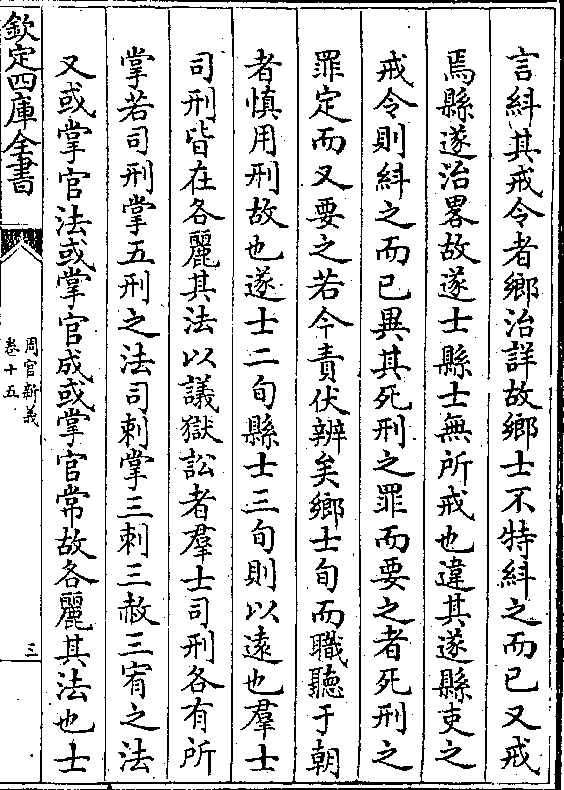 言糾其戒令者鄉治詳故鄉士不特糾之而已又戒
焉縣遂治畧故遂士縣士無所戒也違其遂縣吏之
戒令則糾之而已異其死刑之罪而要之者死刑之
罪定而又要之若今責伏辨矣鄉士旬而職聽于朝
者慎用刑故也遂士二旬縣士三旬則以遠也羣士
司刑皆在各麗其法以議獄訟者羣士司刑各有所
掌若司刑掌五刑之法司刺掌三刺三赦三宥之法
又或掌官法或掌官成或掌官常故各麗其法也士
欽定四庫全書
周官新義
卷十五
三